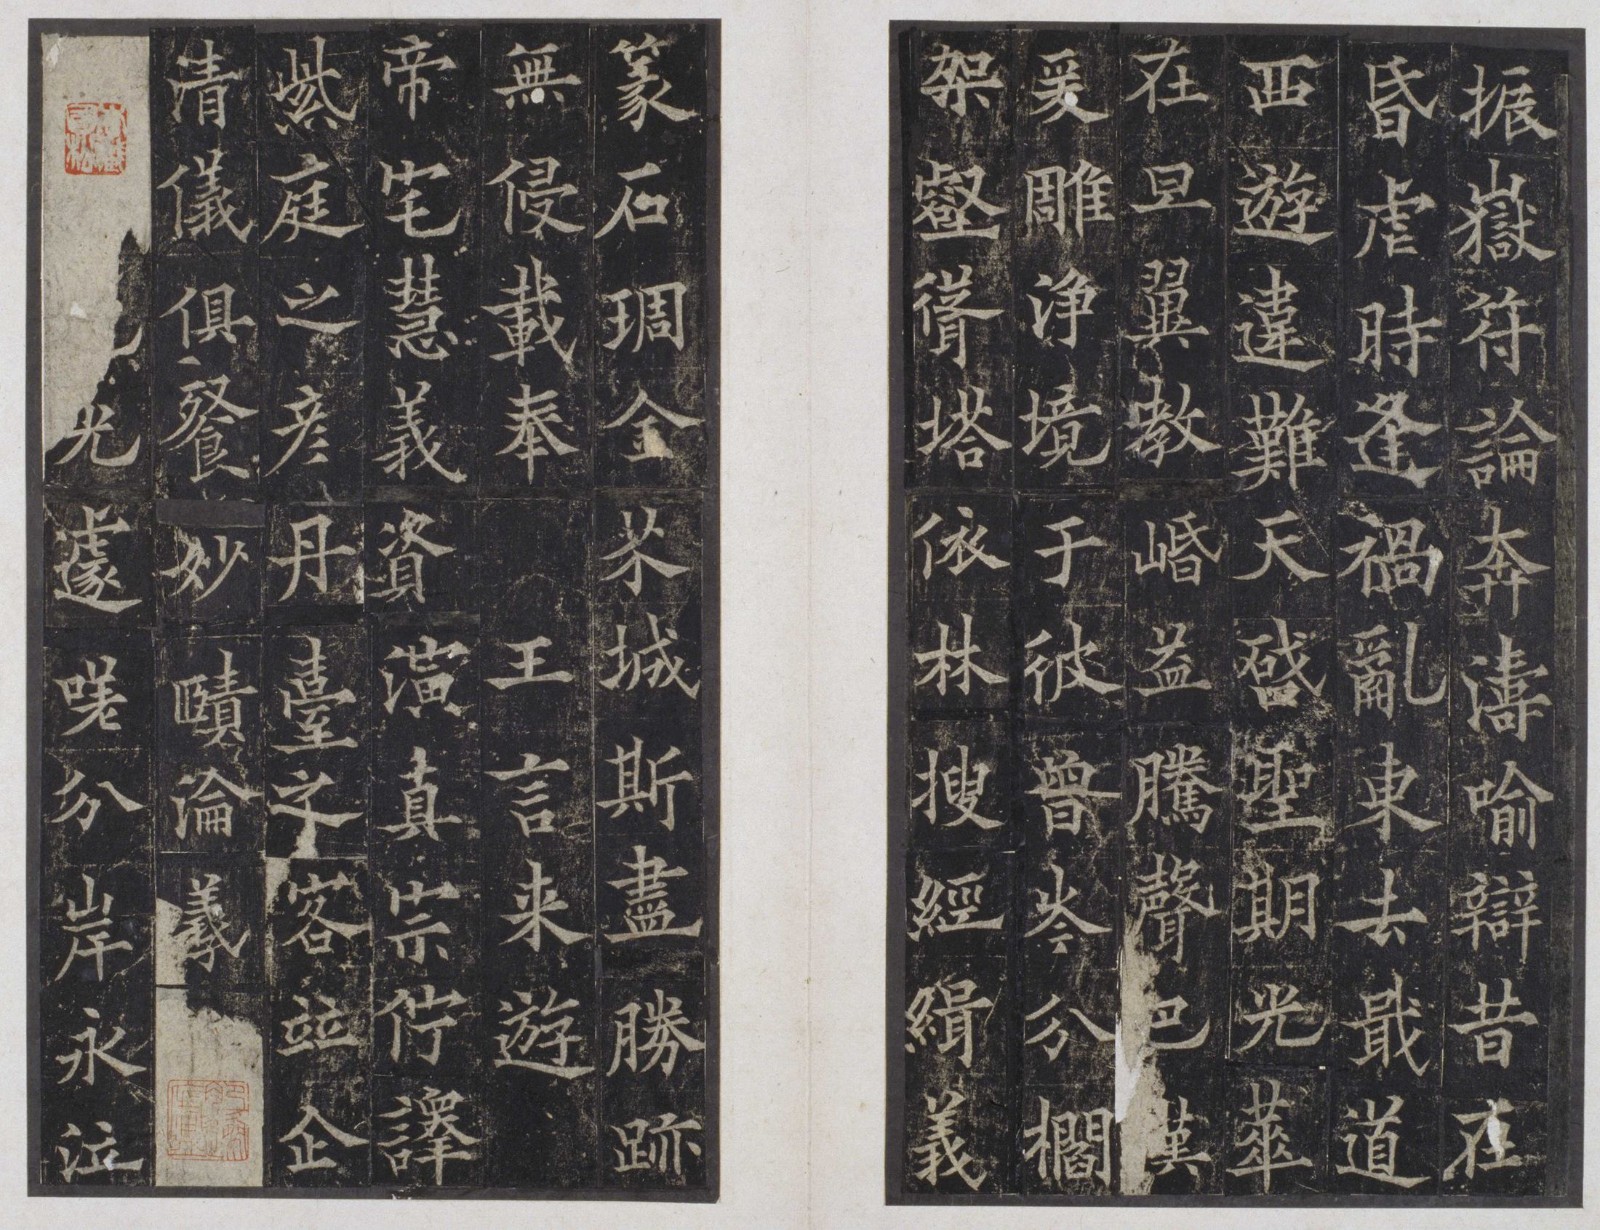 振嶽符論奔濤喻辯昔在
昏虐時逢禍亂東去戢道
西遊違難天啓聖期光華
在旦翼教崏益騰聲巴漢
爰雕淨境于彼曾岑分櫩
架壑聳塔依林搜經緝義
篆石琱金芥城斯盡勝跡
無侵載奉　王言來遊
帝宅慧義資演真宗佇譯
紫庭之彦丹臺之客並企
清儀俱餐妙賾淪羲
光遽咲分岸永泣